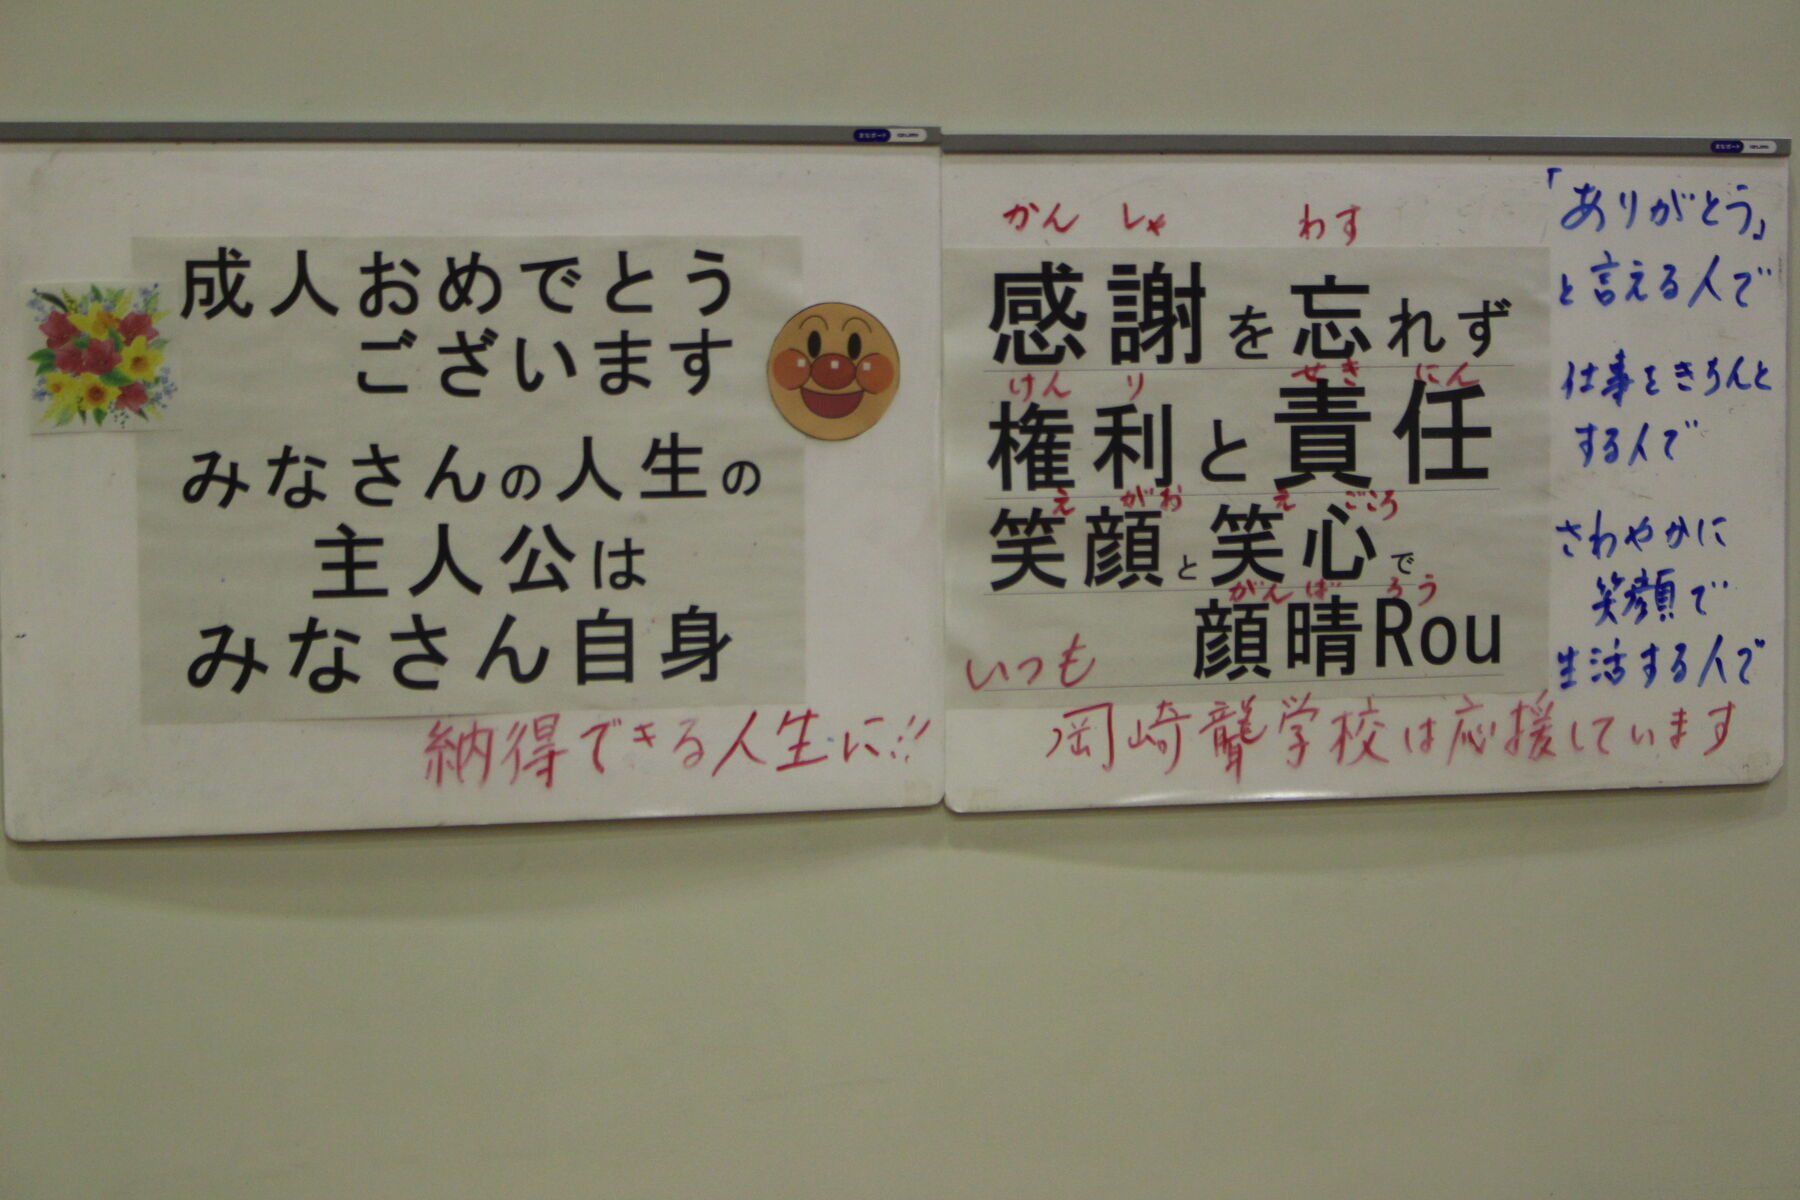 成人おめでとう
ございます
みなさんの人生の
主人公は
みなさん自身
納得できる人生に!!
かん しゃ わす
感謝を忘れず
けん り せき にん
権利と責任
え がお え ごころ
笑顔と笑心で
がんば ろう
顔晴Rou
いつも
岡崎聾学校は応援しています
「ありがとう」
と言える人で
仕事をきちんと
する人で
さわやかに
笑顔で
生活する人で